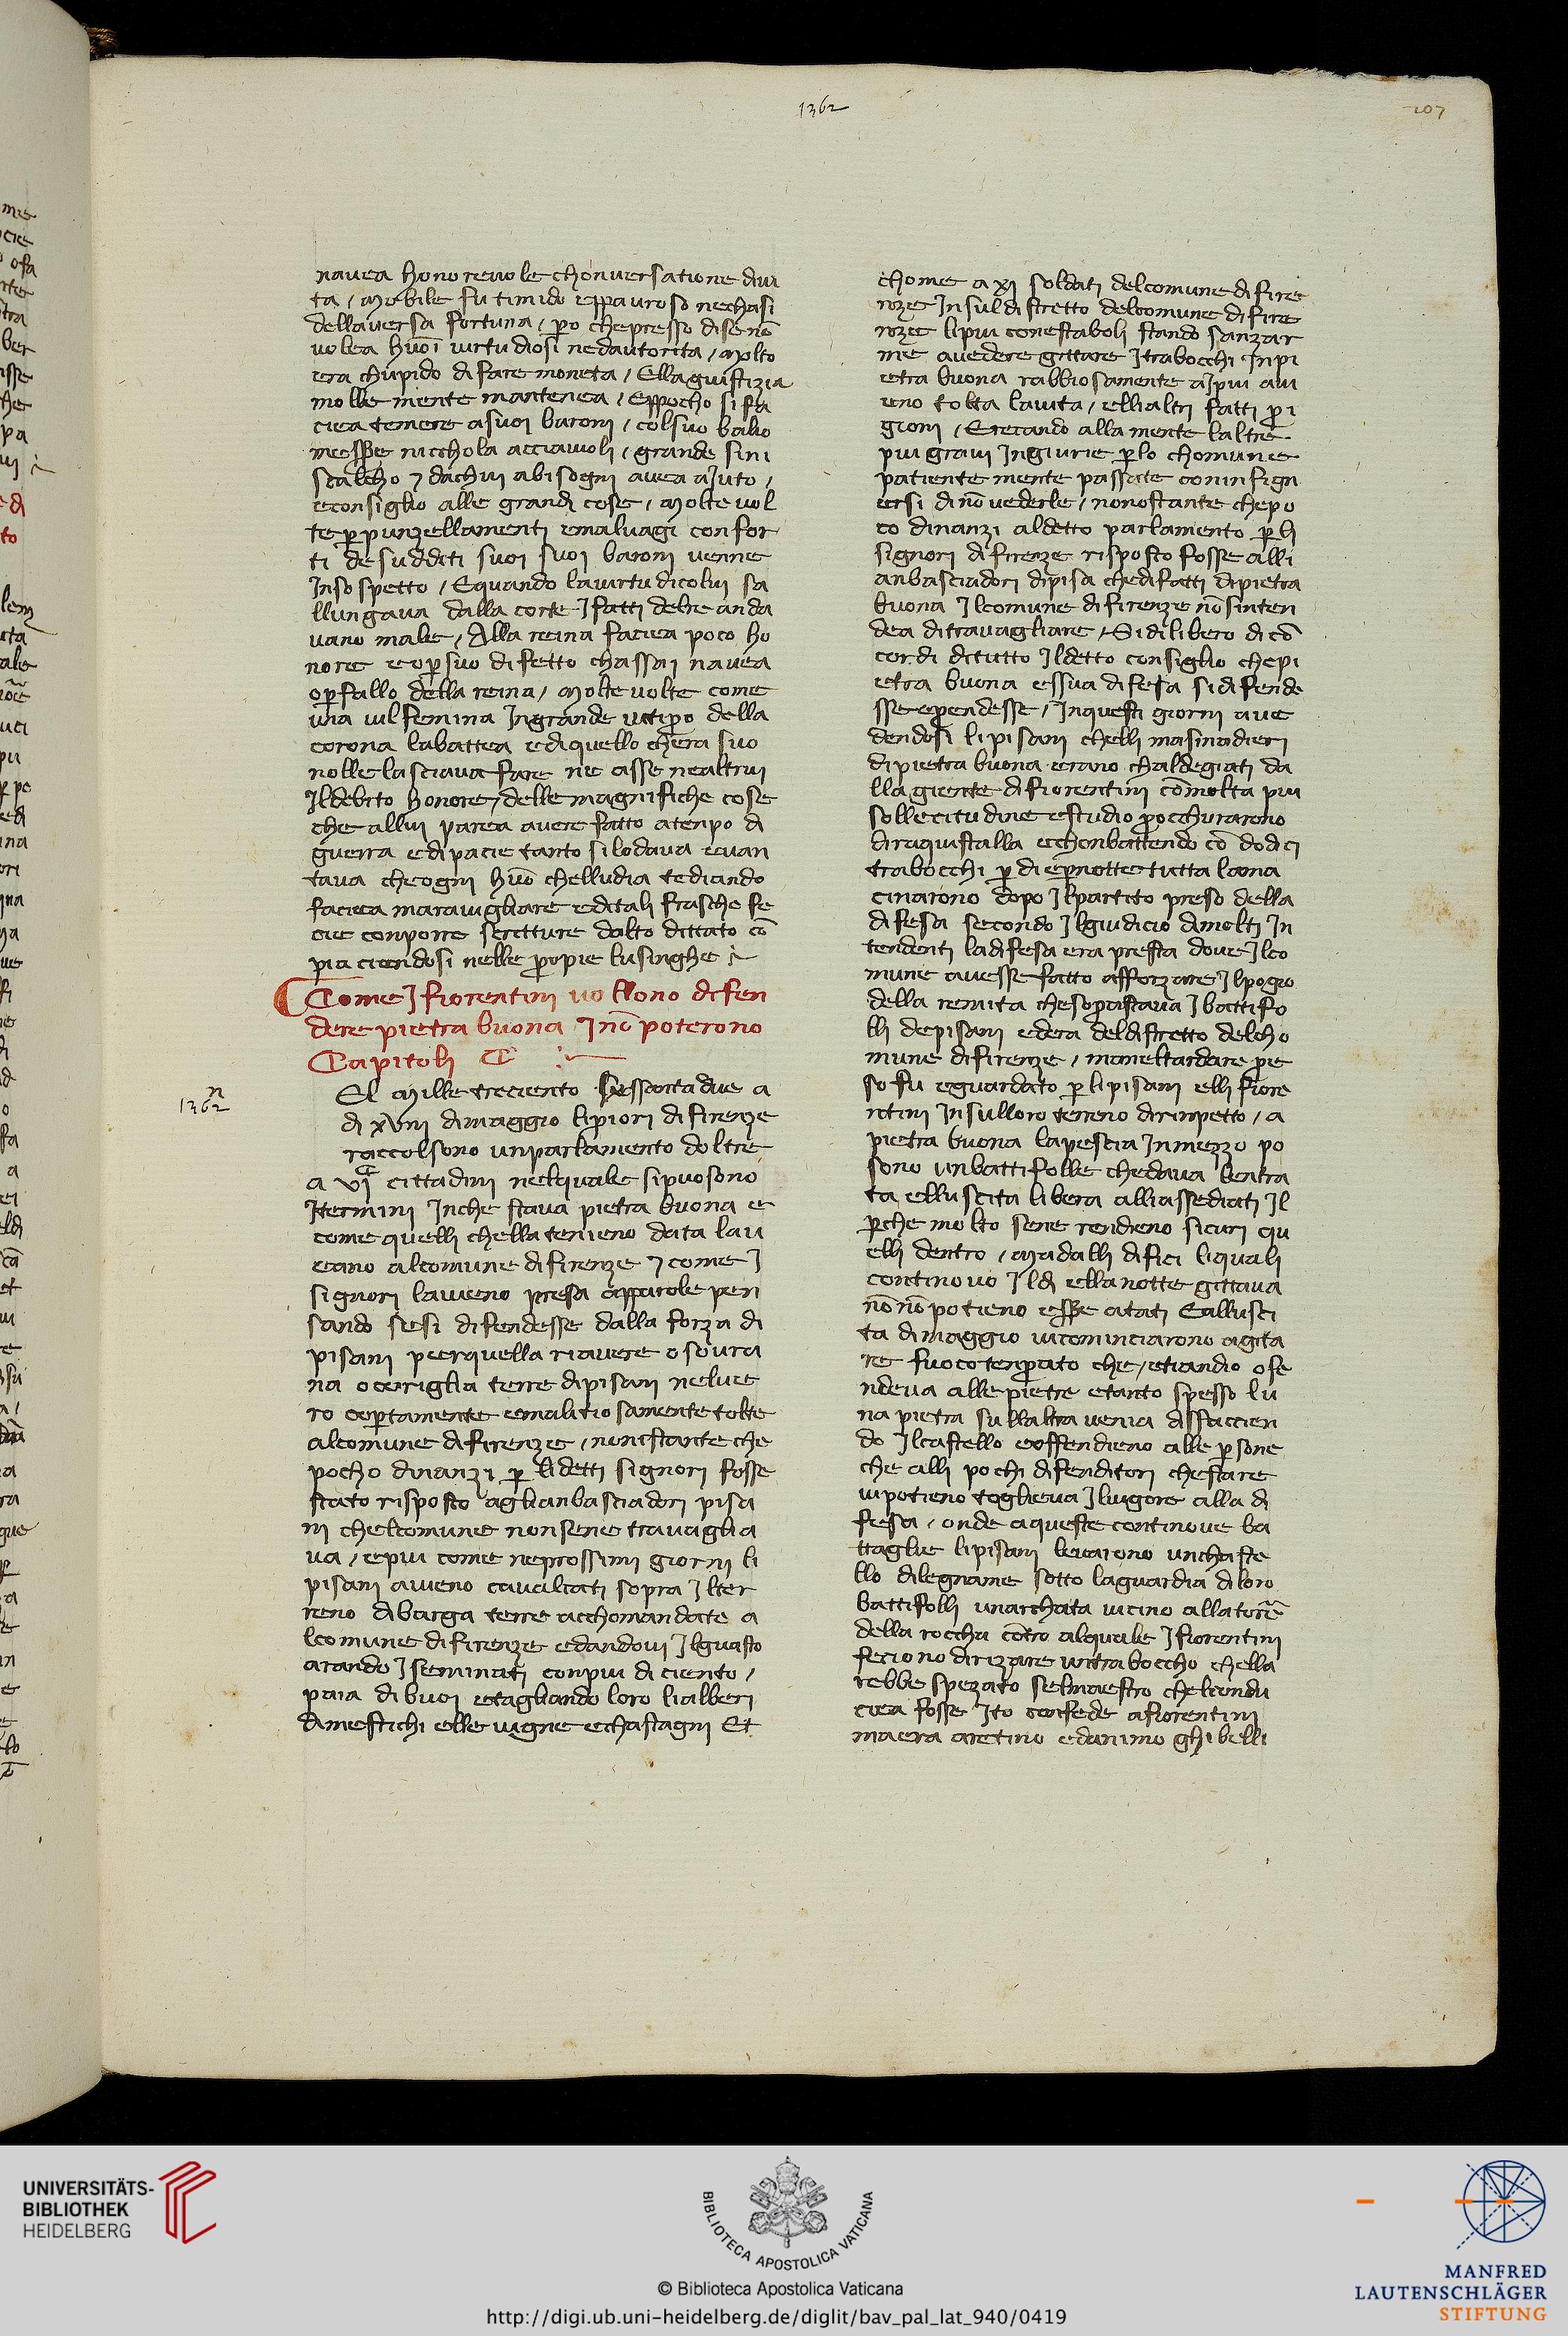 1362
207
navea honorevole chonversatione di vi
ta / mobile fu timido eppauroso nechasi
dellaversa fortuna / p̱o chepresso disenō
volea huōi virtudiosi nedautorita / molto
era chupido di fare moneta / Ella giustizia
molle mente mantenea / Eppocho si fa
ciea temere asuoi baroni / colsuo balio
messer nicchola acciaiuoli / grande sini
scalcho ⁊ dachui abisogni avea aiuto /
econsiglio alle grandi cose / molte vol
te p̱ punzellamenti emalvagi confor
ti desudditi suoi suoi baroni venne
Insospetto / Equando lavirtu dicolui sa
llungava dalla corte J fatti delre anda
vano male / Alla reina faciea poco ho
nore e o p̱ suo difetto chassai navea
o p̱ fallo della reina / molte volte come
una vil femina Ingrande vitipo della
corona labattea edi quello chera suo
nolle lasciava fare ne asse nealtrui
Il debito honore / delle magnifiche cose
che allui parea avere fatto atenpo di
guerra e di pacie tanto si lodava evan
tava che ogni huō chelludia tediando
faciea maravigliare editali frasche fe
cie conporre scritture dalto dittato cō
piaciendosi nelle propie lusinghe
Come J fiorentini vollono difen
dere pietra buona Jnō poterono
Capitoli C
1362
El Mille treciento sessanta due a
di xviii di maggio li priori di firenze
raccolsono unparlamento doltre
a vi cittadini nelquale sipuosono
J termini Inche stava pietra buona e
come quelli chella tenieno data lav
eano alcomune di firenze ⁊ come J
signori lavieno presa apparole pen
sando sesi difendesse dalla forza di
pisani per quella riavere o sovra
na o ceriglia terre di pisani nelvee
ro copertamente emalitiosamente tolte
alcomune di firenze / nonistante che
pocho dinanzi p̱ li detti signori fosse
stato risposto agli anbasciadori pisa
ni chelcomune nonsene travaglia
va / epiu come neprossimi giorni li
pisani avieno cavalcati sopra Ilter
reno di barga terre acchomandate a
lcomune di firenze edandovi Ilguasto
arando J seminati conpiu di ciento /
paia di buoi etagliando loro lialberi
dimestichi elle vigne echastagni Et
chome a xi soldati delcomune di fire
nze Insul distretto delcomune di fire
nze lipiu conestaboli stando sanzar
me avedere gittare J trabocchi Inpi
etra buona rabbiosamente aipiu avi
eno tolta lavita / elli altri fatti p̱i
gioni / Erecando alla mente laltre
piu gravi Ingiurie p̱lo chomune
patiente mente passate coninfign
ersi di nō vederle / nonostante chepo
co dinanzi aldetto parlamento p̱ li
signori di firenze risposto fosse alli
anbasciadori dipisa chedifatti dipietra
buona Ilcomune di firenze nō sinten
dea ditravagliare / Sidilibero di cō
cordi ditutto Ildetto consiglio chepi
etra buona essua difesa sidifende
sse ep̱endesse / Inquesti giorni ave
dendosi lipisani chelli masinadieri
dipietra buona erano chaldegiati da
lla giente difiorentini cōmolta piu
sollecitudine estudio procchurarono
diraquistalla echonbattendo cō dodici
trabocchi p̱ di ep̱notte tutta lama
cinarono dopo Ilpartito preso della
difesa secondo Ilgiudicio dimolti In
tendenti ladifesa era presta dove Ilco
mune avesse fatto afforzare Ilpogio
della remita chesoprastava J battifo
lli depisani edera deldistretto delcho
mune di firenze / maneltardare pre
so fu eguardato p̱ lipisani elli fiore
ntini Insulloro terreno dirinpetto / a
pietra buona lapescia Inmezzo po
sono unbattifolle chedava lentra
ta elluscita libera alliassediati Il
p̱che molto sene rendieno sicuri qu
elli dentro / Madalli difici liquali
continovo Ildi ellanotte gittava
nō nō potieno essere atati Eallusci
ta di maggio vicominciarono agita
re fuoco tenprato che / etiandio ofe
ndeva allepietre etanto spesso lu
na pietra sullaltra venia disfaccien
do Ilcastello eoffendieno alle p̱sone
che alli pochi difenditori chestare
vipotieno toglieva Ilvigore alla di
fesa / onde aqueste continove ba
ttaglie lipisani levarono unchaste
llo dilegname sotto laguardia di loro
battifolli unarchata vicino allatorre
della roccha cōtro alquale J fiorentini
feciono dirizare untrabocco chella
rebbe spezato selmaestro chelcondu
ciea fosse Ito confede afiorentini
maera aretino edanimo ghibelli
UNIVERSITÄTS-
BIBLIOTHEK
HEIDELBERG
BIBLIOTECA APOSTOLICA VATICANA
© Biblioteca Apostolica Vaticana
http://digi.ub.uni-heidelberg.de/diglit/bav_pal_lat_940/0419
MANFRED
LAUTENSCHLÄGER
STIFTUNG